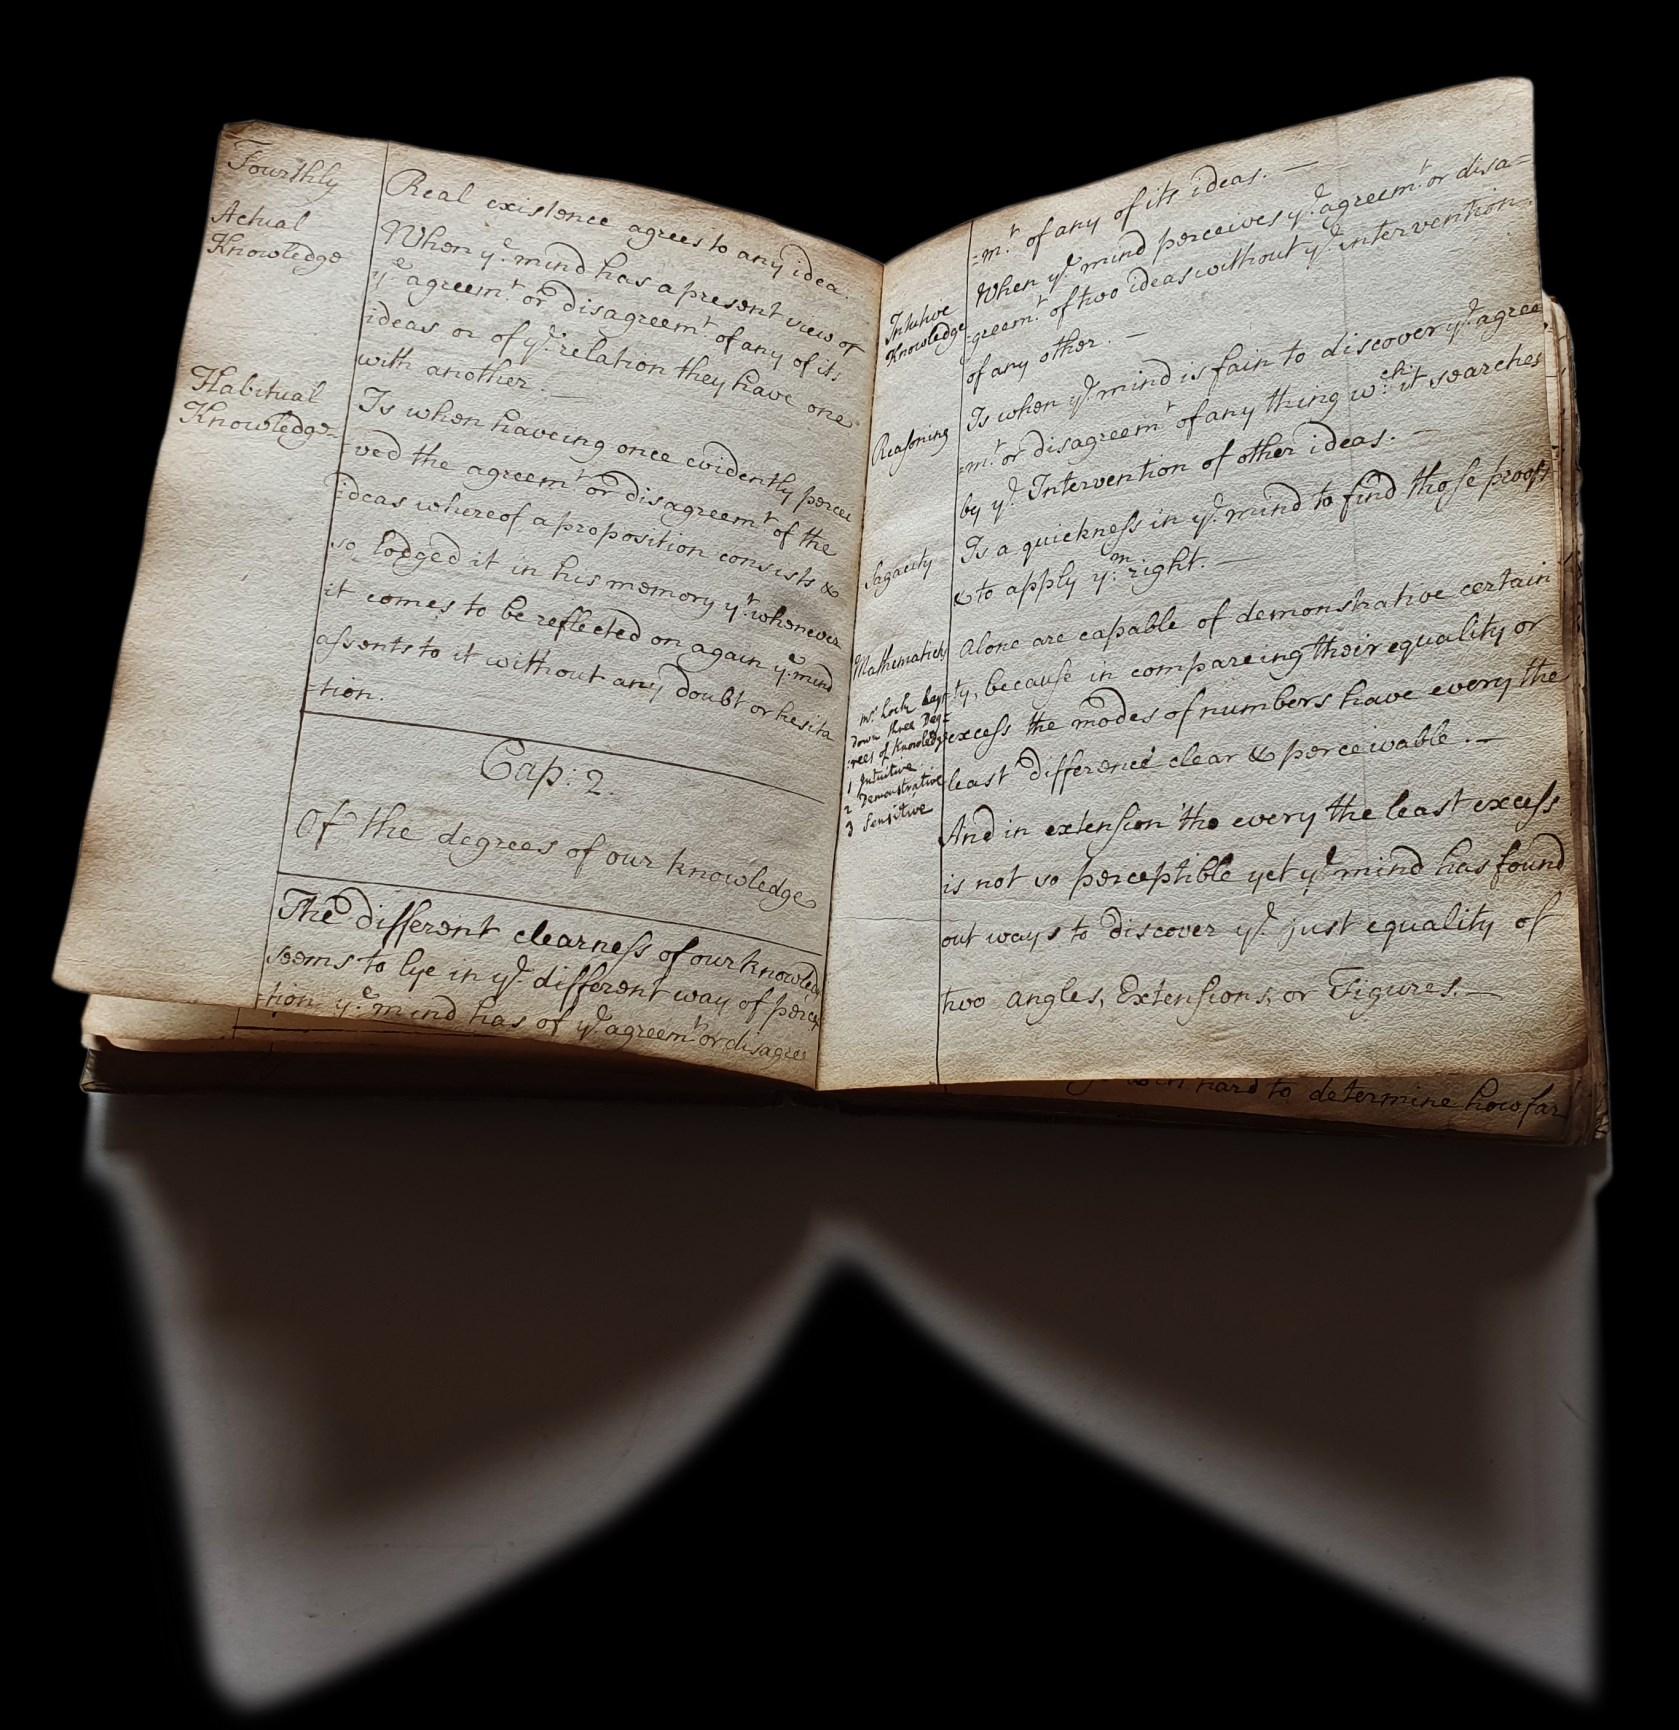 Fourthly
Real existence agrees to any idea.
Actual
Knowledge
When yᵉ mind has a present view of
yᵉ agreemᵗ or disagreemᵗ of any of its
ideas or of yᵉ relation they have one
with another. —
Habitual
Knowledge-
Is when haveing once evidently percei
=ved the agreemᵗ or disagreemᵗ of the
ideas whereof a proposition consists &
so lodged it in his memory yᵗ whenever
it comes to be reflected on again yᵉ mind
assents to it without any doubt or hesita
-tion.
Cap: 2.
Of the degrees of our knowledge
The different clearness of our knowled
seems to lye in yᵉ different way of percep
-tion yᵉ mind has of yᵉ agreemᵗ or disagree
=mᵗ of any of its ideas. —
Intuitive
Knowledge
When yᵉ mind perceives yᵉ agreemᵗ or disa=
=greemᵗ of two ideas without yᵉ intervention
of any other. —
Reasoning
Is when yᵉ mind is fain to discover yᵉ agree
=mᵗ or disagreemᵗ of any thing wᶜʰ it searches
by yᵉ Intervention of other ideas. —
Sagacity
Is a quickness in yᵉ mind to find those proofs
& to apply yᵐ right. —
Mathematicks
Alone are capable of demonstrative certain
ty, because in compareing their equality or
excess the modes of numbers have every the
least difference clear & perceivable. —
Mʳ Lock lays
down three Deg=
=rees of Knowledge
1 Intuitive
2 Demonstrative
3 Sensitive
And in extension tho every the least excess
is not so perceptible yet yᵉ mind has found
out ways to discover yᵉ just equality of
two angles, Extensions, or Figures. —
hard to determine how far